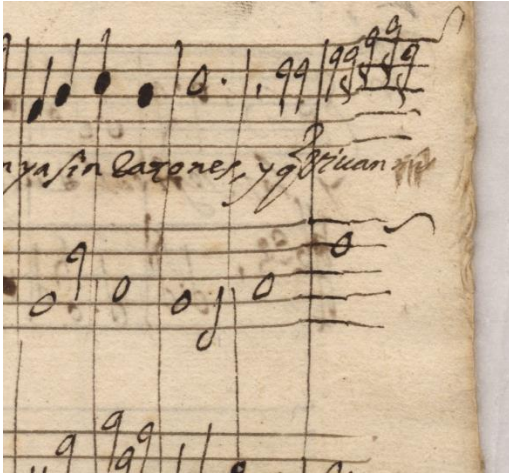 n ya sin razones, y q̃ Viuan